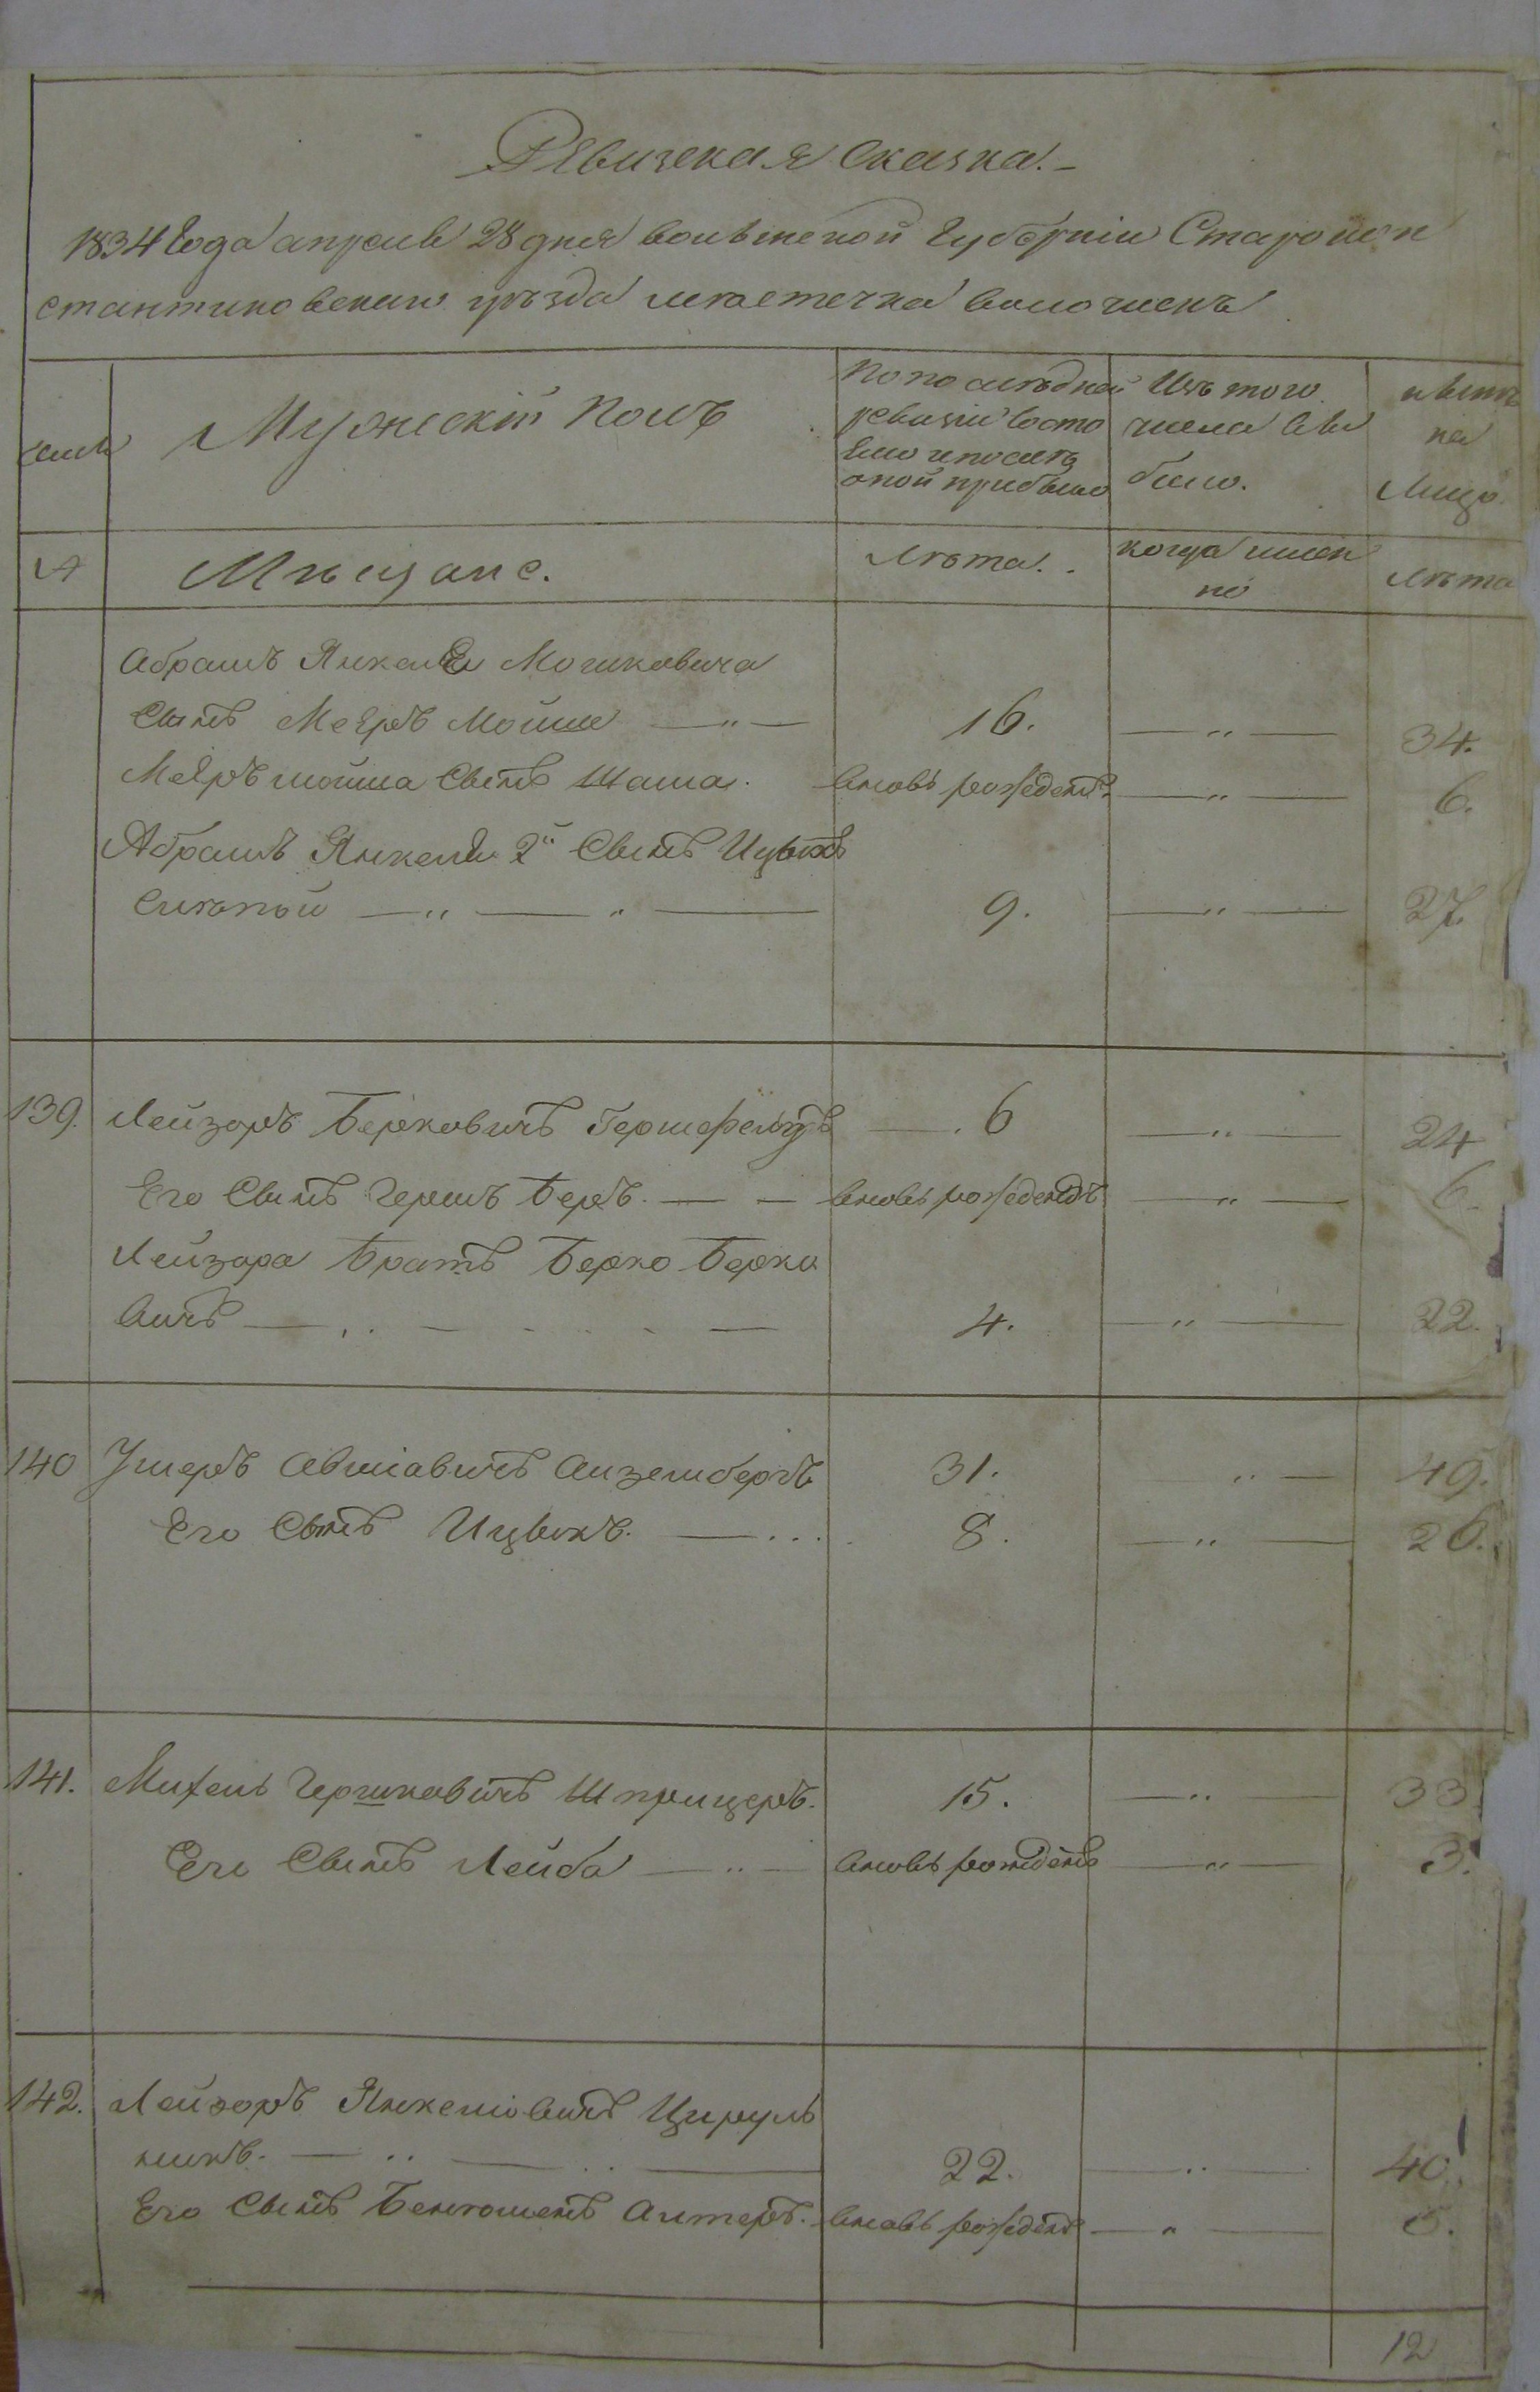 Ревизская сказка.
1834 года апреля 28 дня волынской губернии Старокон
стантиновского уѣзда мѣстечка волочискъ
семьи
Мужескій полъ
По последней
ревизіи состо
яло и послѣ
оной прибыло
Изъ того
числа вы
было.
нынѣ
на
лицо.
№
Мѣщане.
лѣта.
когда имен
но
лѣта
Абрамъ Янкеля Мошковича
Сынъ Мееръ Мойше — " — 16. — " — 34.
Мееръ мойша Сынъ Шама. вновь рожденъ — " — 6.
Абрамъ Янкеля 2й Сынъ Ицыкъ
слѣпой — " — " — 9. — " — 27.
139. Лейзоръ Берковичъ Гершефельдъ — 6 — " — 24
Его Сынъ Гершъ Беръ. — — вновь рожденъ — " — 6.
Лейзора Братъ Берко Берко
вичъ — 4. — " — 22.
140 Ушеръ Авшіовичъ Айзембергъ 31. " — 49.
Его Сынъ Ицыкъ. — 8. — " — 26.
141. Михель Гершковичъ Шприцеръ. 15. — " — 33
Его Сынъ Лейба — " — вновь рожденъ — " — 3.
142. Лейзоръ Янкеліовичъ Цируль
никъ. — " — " — 22. — " — 40.
Его Сынъ Беньюменъ Алтеръ. вновь рожденъ — " — 5.
12